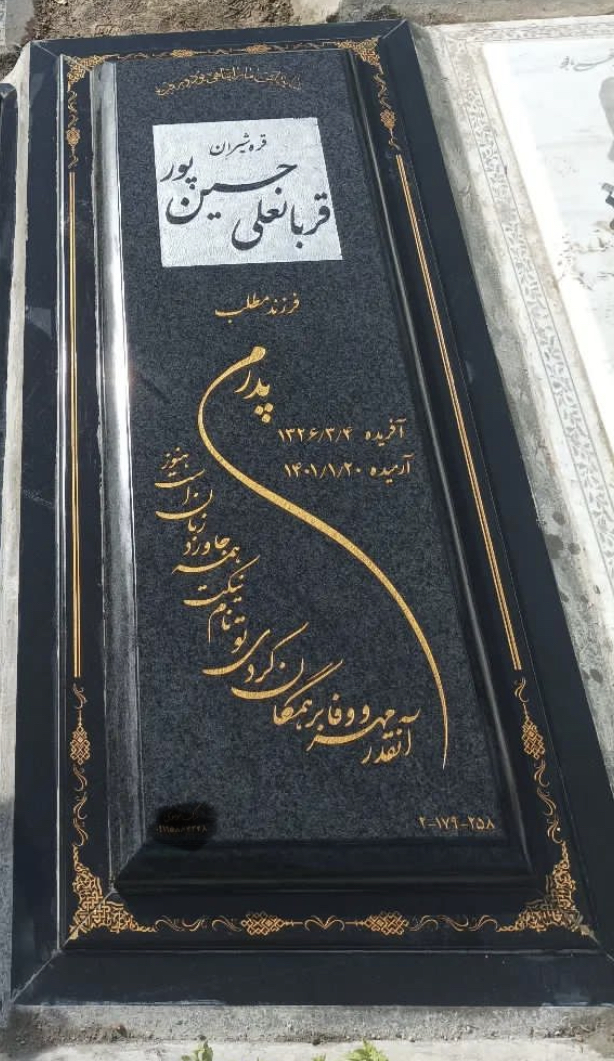 قره شیران
حسین پور
قربانعلی
فرزند مطلب
پدرم
آفریده ۱۳۲۶/۳/۴
آرمیده ۱۴۰۱/۱/۲۰
آنقدر مهر و وفا بر همگان کردی تو
نام نیکت همه جا ورد زبان است هنوز
۲-۱۷۹-۲۵۸